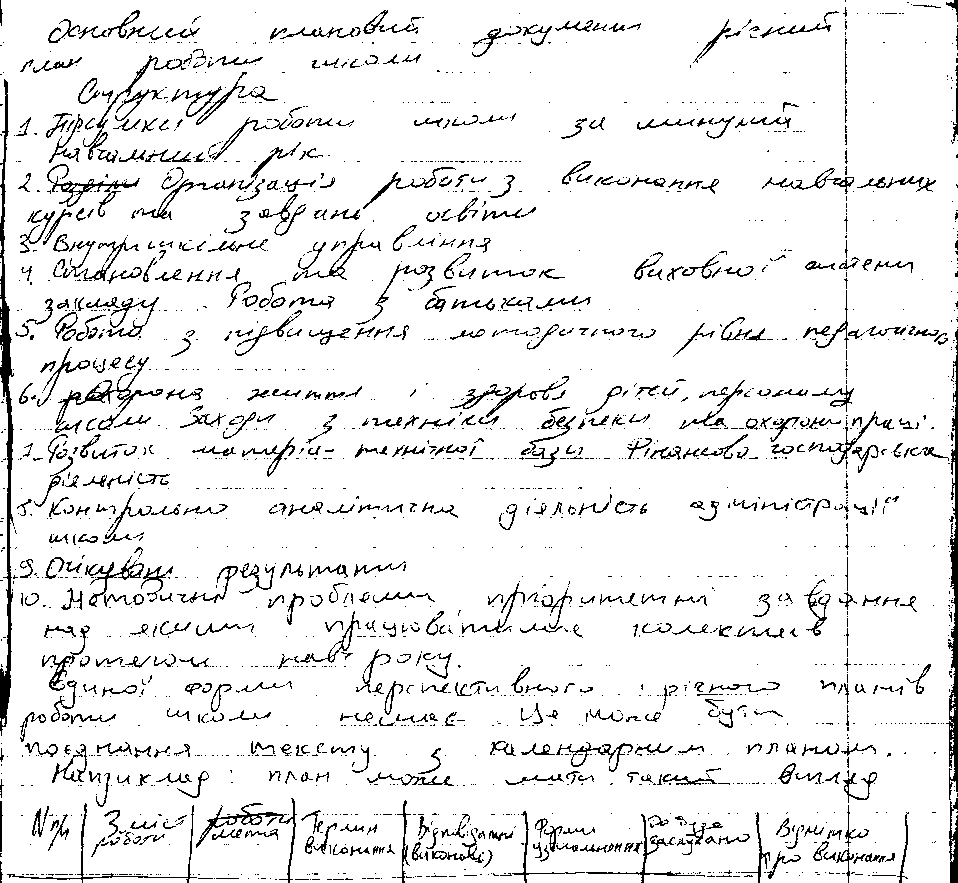 Основний плановий документ річний
план роботи школи
Структура
1. Підсумки роботи школи за минулий
навчальний рік
2. Розділи Організація роботи з виконання навчальних
курсів та завдань освіти
3. Внутришкільне управління
4. Становлення та розвиток виховної системи
закладу. Робота з батьками
5. Робота з підвищення методичного рівня педагогічного
процесу
6. Охорона життя і здоровя дітей, персоналу
школи Заходи з техніки безпеки та охорони праці.
7. Розвиток матеріа-технічної бази Фінансово-господарівка
діяльність
8. Контрольно аналітична діяльність адміністрації
школи
9. Очікувані результати
10. Методична проблеми, пріоритетні завдання
над якими працюватиме колектив
протягом навч року.
Єдиної форми перспективного і річного планів
роботи школи немає Це може бути
поєднання тексту з календарним планом.
Наприклад: план може мати такий вигляд
N п/п | Зміст роботи | роботи мета | Термін виконання | Відповідальні (виконавці) | Форми узагальнення | Де буде заслухано | Відмітка про виконання